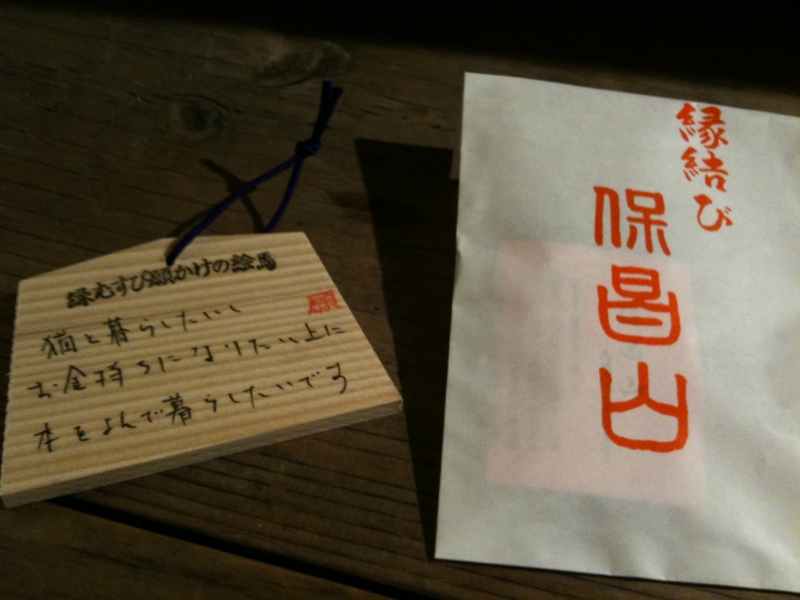 縁むすび願かけの絵馬
願
猫と暮らしたいし
お金持ちになりたい上に
本をよんで暮らしたいです
縁結び
保昌山